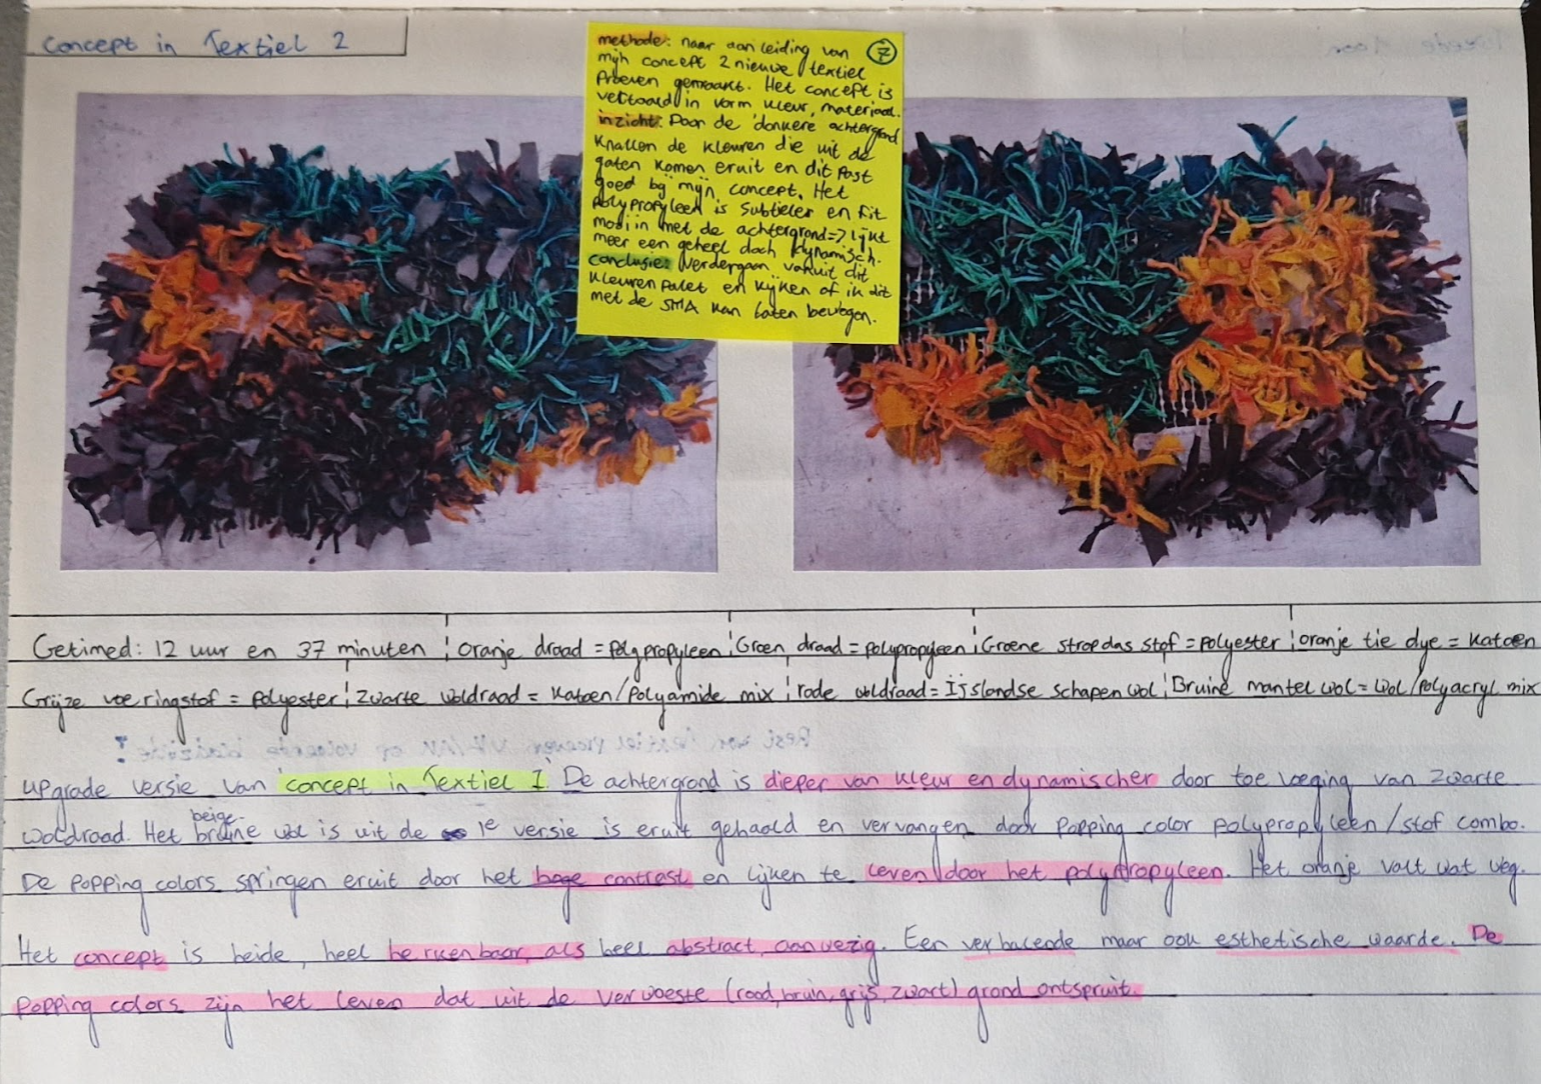 Concept in Textiel 2
methode: naar aanleiding van
mijn concept 2 nieuwe textiel
Proeven gemaakt. Het concept is
vertaald in vorm kleur, materiaal.
inzicht: Door de donkere achtergrond
Knallen de kleuren die uit de
gaten komen eruit en dit Past
goed bij mijn concept. Het
Polypropyleen is subtieler en Fit
mooi in met de achtergrond=> lijkt
meer een geheel doch dynamisch.
conclusie: Verdergaan vanuit dit
Kleuren Palet en kijken of ik dit
met de SMA kan laten bewegen.
7
Getimed: 12 uur en 37 minuten ¦ Oranje draad = polypropyleen ¦ Groen draad = polypropyleen ¦ Groene stropdas stof = Polyester ¦ oranje tie dye = Katoen
Grijze voeringstof = Polyester ¦ Zwarte woldraad = Katoen/Polyamide mix ¦ rode woldraad = IJslandse schapen wol ¦ Bruine mantel wol = Wol/Polyacryl mix
upgrade versie van 'concept in Textiel 1' De achtergrond is dieper van kleur en dynamischer door toe voeging van zwarte
woldraad. Het beige bruine wol is uit de 1e versie is eruit gehaald en vervangen door Popping color polypropyleen/stof combo.
De Popping colors springen eruit door het hoge contrast en lijken te leven door het polypropyleen. Het oranje valt wat weg.
Het concept is beide, heel herkenbaar als heel abstract, aanwezig. Een verhalende maar ook esthetische waarde. De
Popping colors zijn het leven dat uit de verwoeste (rood, bruin, grijs, zwart) grond ontspruit.